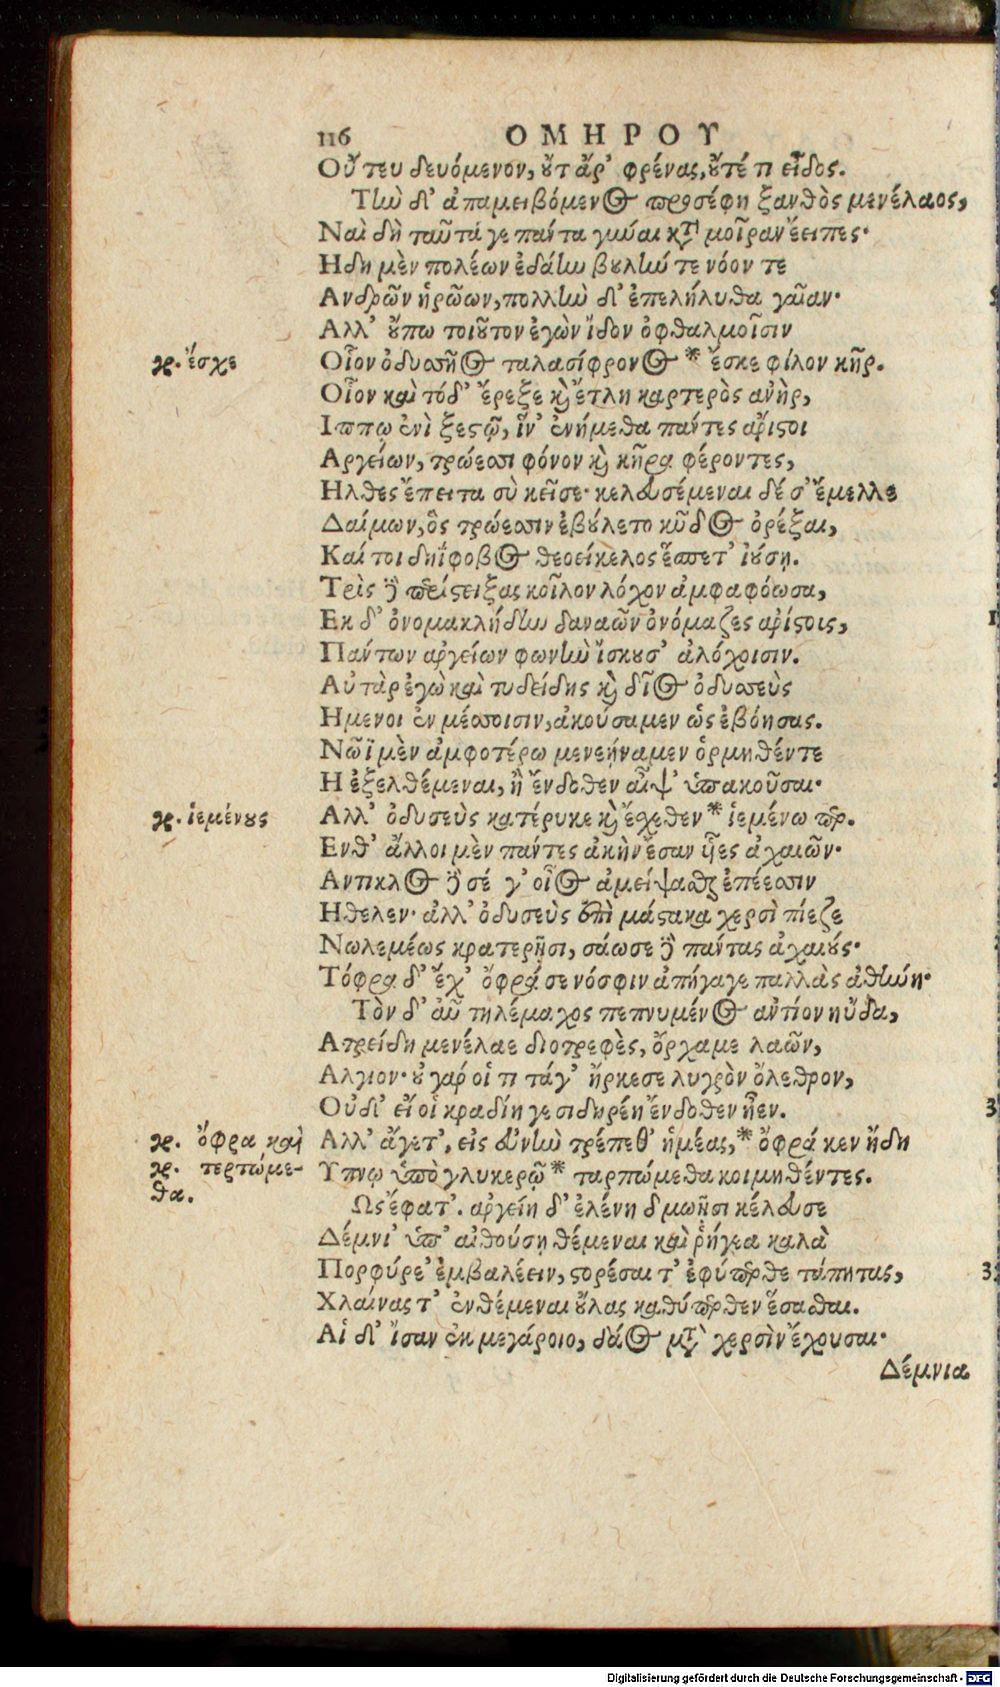 116 ΟΜΗΡΟΥ
Οὔ τευ δευόμενον, ȣ̓́τ ἄρ' φρένας, ȣ̓́τέ τι εἶδος.
Τὴν δ' ἀπαμειβόμενος προσέφη ξανθὸς μενέλαος,
Ναὶ δὴ ταῦτά γε πάντα γύναι κτ̀ μοῖραν ἔειπες·
Ηδη μὲν πολέων ἐδάην βȣλήν τε νόον τε
Ανδρῶν ἡρώων, πολλὴν δ' ἐπελήλυθα γαῖαν·
Αλλ' ȣ̓́πω τοιȣ͂τον ἐγὼν ἴδον ὀφθαλμοῖσιν
γρ. ἔσχε Οἷον ὀδυσσῆος ταλασίφρονος * ἔσκε φίλον κῆρ.
Οἷον καὶ τόδ' ἔρεξε κ̀ ἔτλη καρτερὸς ἀνὴρ,
Ιππῳ ἐνὶ ξεστῷ, ἵν' ἐνήμεθα πάντες ἄριστοι
Αργείων, τρώεσσι φόνον κ̀ κῆρα φέροντες,
Ηλθες ἔπειτα σὺ κεῖσε· κελευσέμεναι δέ σ' ἔμελλε
Δαίμων, ὃς τρώεσσιν ἐβȣ́λετο κῦδος ὀρέξαι,
Καί τοι δηΐφοβος θεοείκελος ἕσπετ' ἰȣ́σῃ.
Τρὶς δὲ περίστειξας κοῖλον λόχον ἀμφαφόωσα,
Εκ δ' ὀνομακλήδην δαναῶν ὀνόμαζες ἀρίστοις,
Πάντων ἀργείων φωνὴν ἴσκȣσ' ἀλόχοισιν.
Αὐτὰρ ἐγὼ καὶ τυδείδης κ̀ δῖος ὀδυσσεὺς
Ημενοι ἐν μέσσοισιν, ἀκούσαμεν ὡς ἐβόησας.
Νῶϊ μὲν ἀμφοτέρω μενεήναμεν ὁρμηθέντε
Η ἐξελθέμεναι, ἢ ἔνδοθεν αἶψ' ὑπακοῦσαι·
γρ. ἱεμένȣς Αλλ' ὀδυσεὺς κατέρυκε κ̀ ἔσχεθεν * ἱεμένω περ.
Ενθ' ἄλλοι μὲν πάντες ἀκὴν ἔσαν υἷες ἀχαιῶν·
Αντικλος δὲ σέ γ' οἶος ἀμείψασθαι ἐπέεσσιν
Ηθελεν· ἀλλ' ὀδυσεὺς ἐπὶ μάστακα χερσὶ πίεζε
Νωλεμέως κρατερῇσι, σάωσε δὲ πάντας ἀχαιȣ́ς·
Τόφρα δ' ἔχ' ὄφρά σε νόσφιν ἀπήγαγε παλλὰς ἀθήνη·
Τὸν δ' αὖ τηλέμαχος πεπνυμένος ἀντίον ηὔδα,
Ατρείδη μενέλαε διοτρεφὲς, ὄρχαμε λαῶν,
Αλγιον· ȣ̓ γάρ οἱ τι τάγ' ἤρκεσε λυγρὸν ὄλεθρον,
Οὐδ' εἴ οἱ κραδίη γε σιδηρέη ἔνδοθεν ἦεν.
γρ. ὄφρα καὶ Αλλ' ἄγετ', εἰς εὐνὴν τρέπεθ' ἡμέας, * ὄφρά κεν ἤδη
γρ. τερπώμε- Υπνῳ ὑπὸ γλυκερῷ * ταρπώμεθα κοιμηθέντες.
θα. Ως ἔφατ'. ἀργείη δ' ἑλένη δμωῇσι κέλευσε
Δέμνι' ὑπ' αἰθούσῃ θέμεναι καὶ ῥήγεα καλὰ
Πορφύρε' ἐμβαλέειν, στορέσαι τ' ἐφύπερθε τάπητας,
Χλαίνας τ' ἐνθέμεναι ȣ̓́λας καθύπερθεν ἕσασθαι.
Αἱ δ' ἴσαν ἐκ μεγάροιο, δάος μτ̀ χερσὶν ἔχουσαι·
Δέμνια
Digitalisierung gefördert durch die Deutsche Forschungsgemeinschaft - DFG